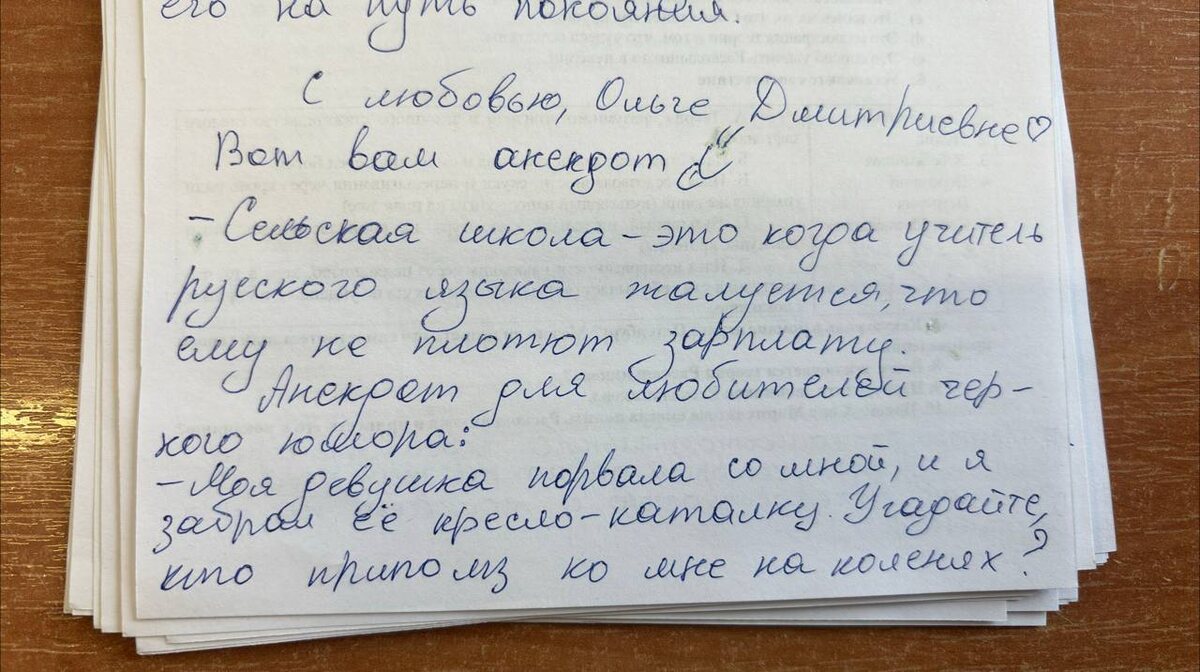 его на путь покояния.
С любовью, Ольге Дмитриевне♡
Вот вам анекдот
- Сельская школа - это когда учитель
русского языка жалуется, что
ему не плотют зарплату.
Анекдот для любителей чер-
ного юмора:
- Моя девушка порвала со мной, и я
забрал её кресло-каталку. Угадайте,
кто приполз ко мне на коленях?